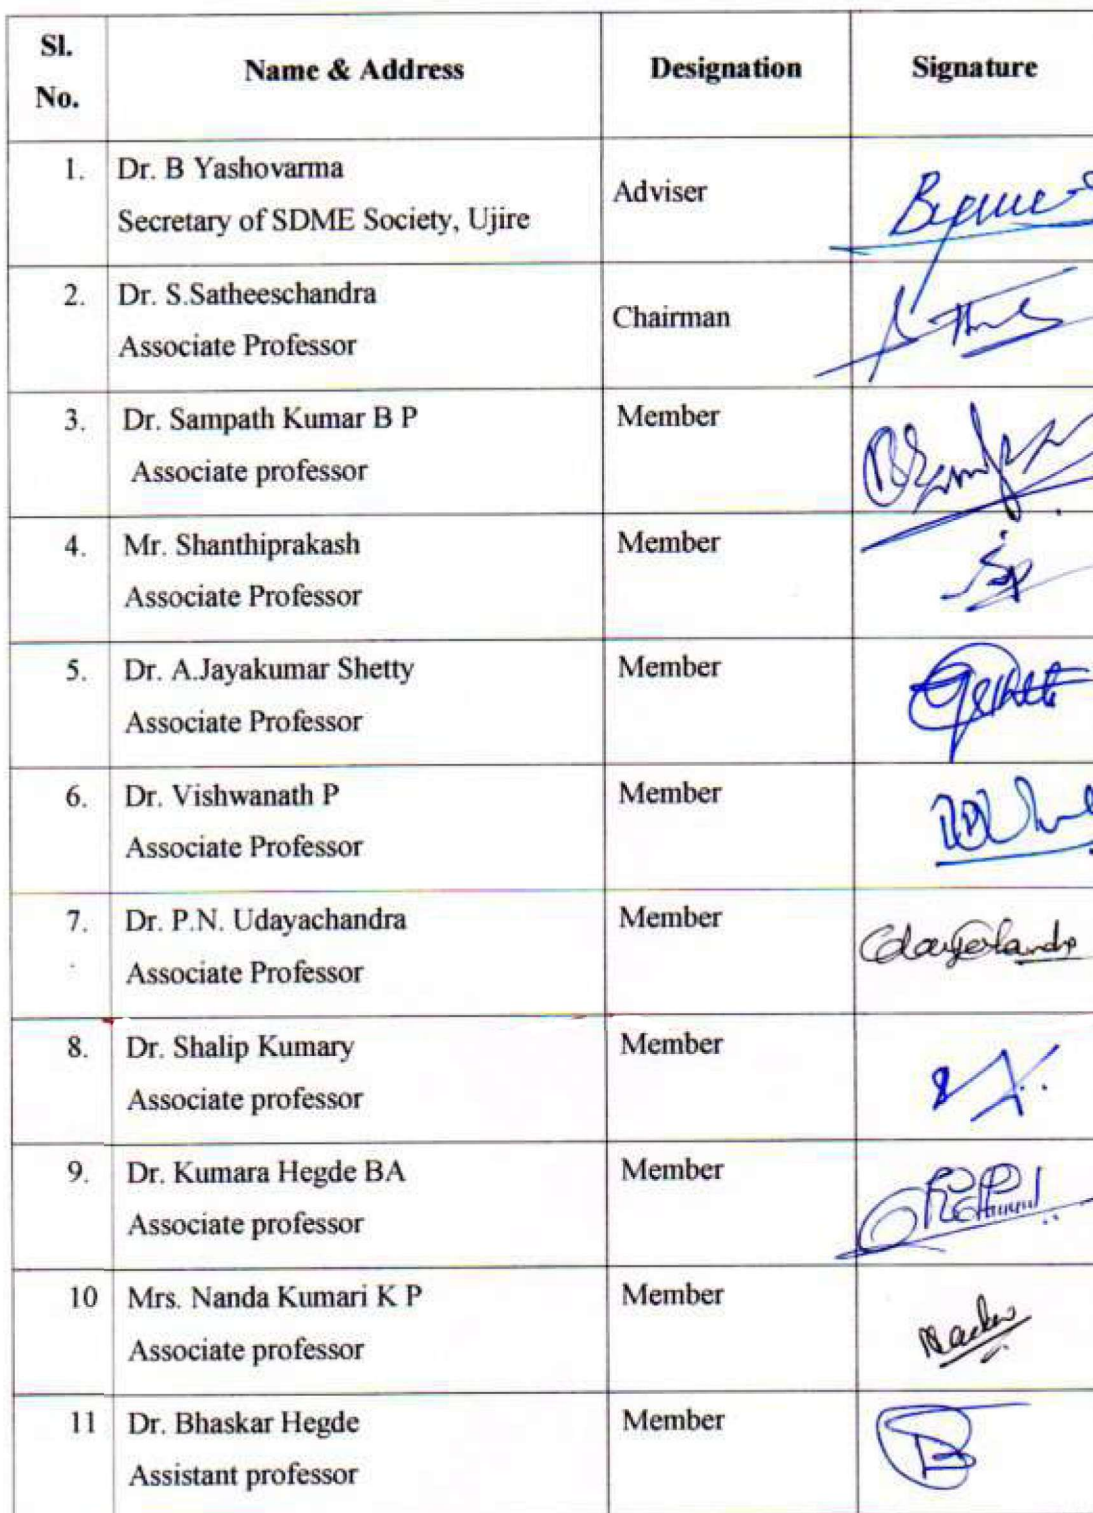 Sl. No.
Name & Address
Designation
Signature
1.
Dr. B Yashovarma
Secretary of SDME Society, Ujire
Adviser
2.
Dr. S.Satheeschandra
Associate Professor
Chairman
3.
Dr. Sampath Kumar B P
Associate professor
Member
4.
Mr. Shanthiprakash
Associate Professor
Member
5.
Dr. A.Jayakumar Shetty
Associate Professor
Member
6.
Dr. Vishwanath P
Associate Professor
Member
7.
Dr. P.N. Udayachandra
Associate Professor
Member
8.
Dr. Shalip Kumary
Associate professor
Member
9.
Dr. Kumara Hegde BA
Associate professor
Member
10
Mrs. Nanda Kumari K P
Associate professor
Member
11
Dr. Bhaskar Hegde
Assistant professor
Member